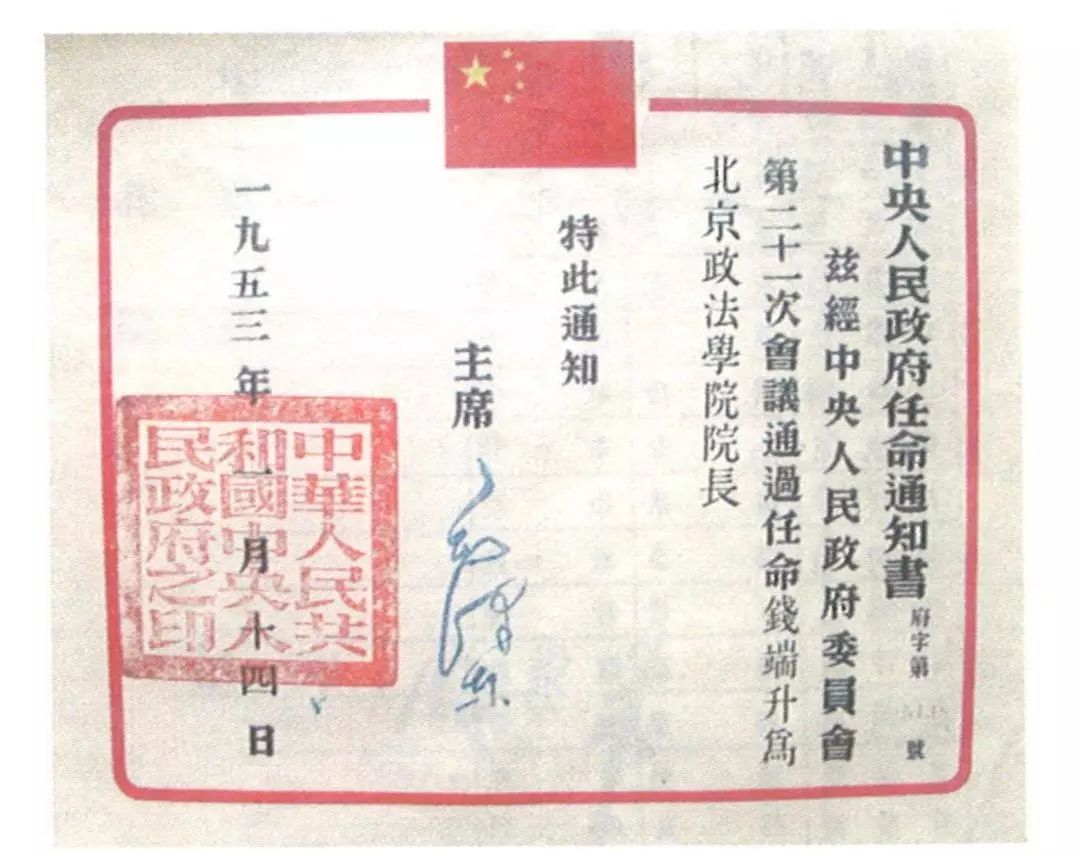 中央人民政府任命通知書
府字第 號
兹經中央人民政府委員會
第二十一次會議通過任命錢端升爲
北京政法學院院長
特此通知
主席 毛澤东
一九五三年一月十四日
中華人民共
和國中央人
民政府之印